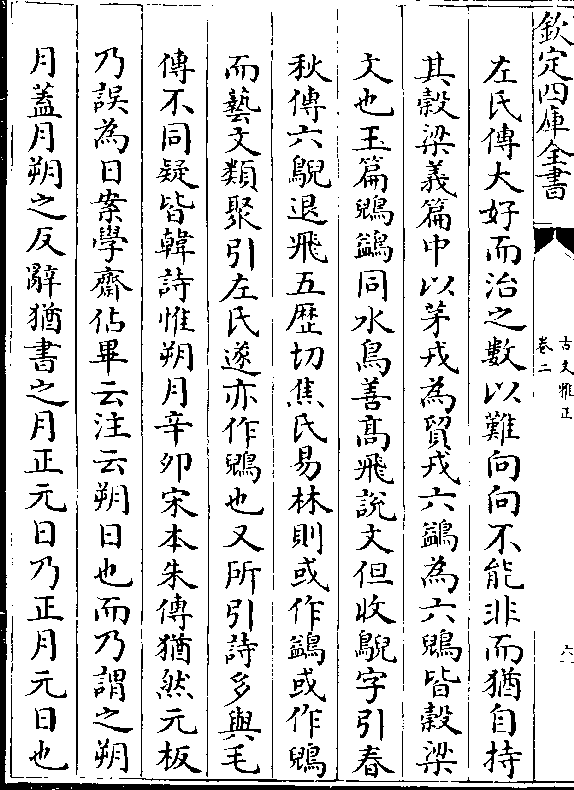 欽定四庫全書
古文雅正
卷二
六
左氏傳大好而治之數以難向向不能非而猶自持
其穀梁義篇中以茅戎為貿戎六鷁為六鶂皆穀梁
文也玉篇鶂鷁同水鳥善髙飛說文但收鶃字引春
秋傳六鶃退飛五歴切焦氏易林則或作鷁或作鶂
而藝文類聚引左氏遂亦作鶂也又所引詩多與毛
傳不同疑皆韓詩惟朔月辛卯宋本朱傳猶然元板
乃誤為日案學齋佔畢云注云朔日也而乃謂之朔
月蓋月朔之反辭猶書之月正元日乃正月元日也